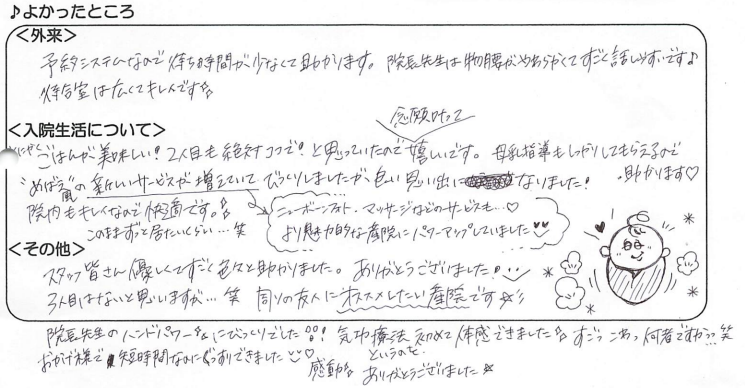 ♪よかったところ
<外来>
予約システムなので待ち時間が少なくて助かります。院長先生は物腰がやわらかくてすごく話しやすいです♪
待合室は広くてキレイです
念願叶って
<入院生活について>
とにかくごはんが美味しい!2人目も絶対ココで!と思っていたので嬉しいです。母乳指導もしっかりしてもらえるので
助かります♡
の新しいサービスが増えていてびっくりしましたが、良い思い出になりました!
院内もキレイなので快適です。
このままずっと居たいくらい…笑
ニューボーンフォト・マッサージなどのサービスも…♡
より魅力的な産院にパワーアップしていました
<その他>
スタッフ皆さん優しくてすごく色々と助かりました。ありがとうございました
3人目はないと思いますが…笑 周りの友人にオススメしたい産院です☆
院長先生のハンドパワーにびっくりでした!気功療法初めて体感できました すごっ こわっ 何者ですかっ?笑
というのを
おかげ様で短時間なのにぐっすりできました
感動 ありがとうございました☆